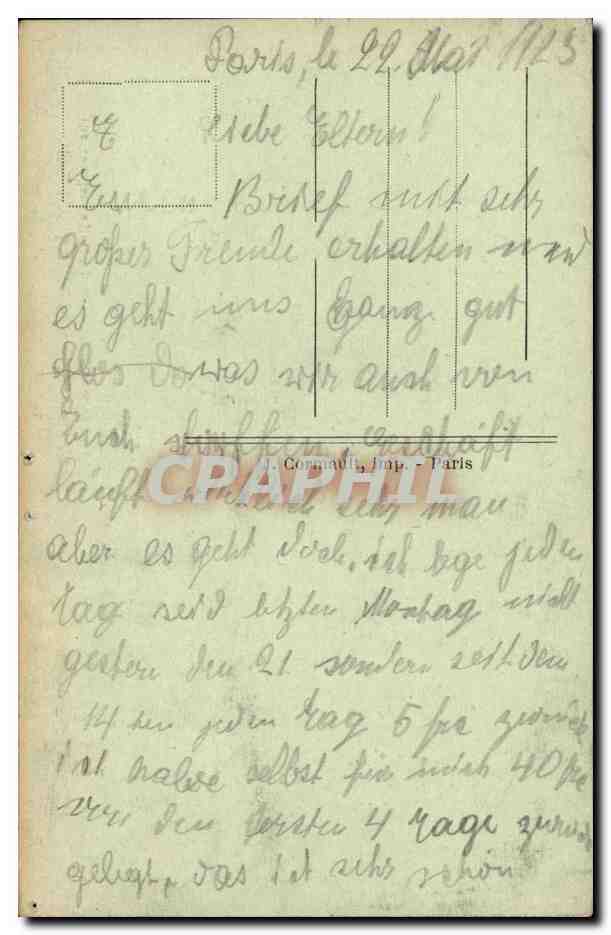 Paris, le 22. Mai 1923
Liebe Eltern!
Brief mit sehr
großer Freude erhalten und
es geht uns Ganz gut
was wir auch von
Euch hoffen, Geschäft
J. Cormault, Imp. - Paris
lauft sehr mau
CPARPHIL
aber es geht doch, ich lege jeden
Tag seid letzten Montag nicht
gestern den 21 sondern seit dem
14 ten jeden Tag 5 frs zurück
ich habe selbst für mich 40 frs
von den ersten 4 Tage zurück
gelegt, das ist sehr schön